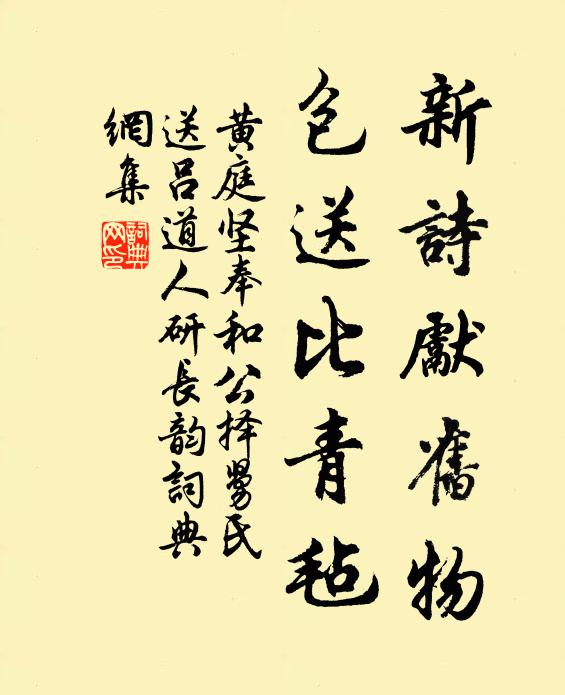 新詩獻舊物
包送比青毡
黄庭坚奉和公择舅氏
送吕道人研長韵詞典
網集
詞典
网印